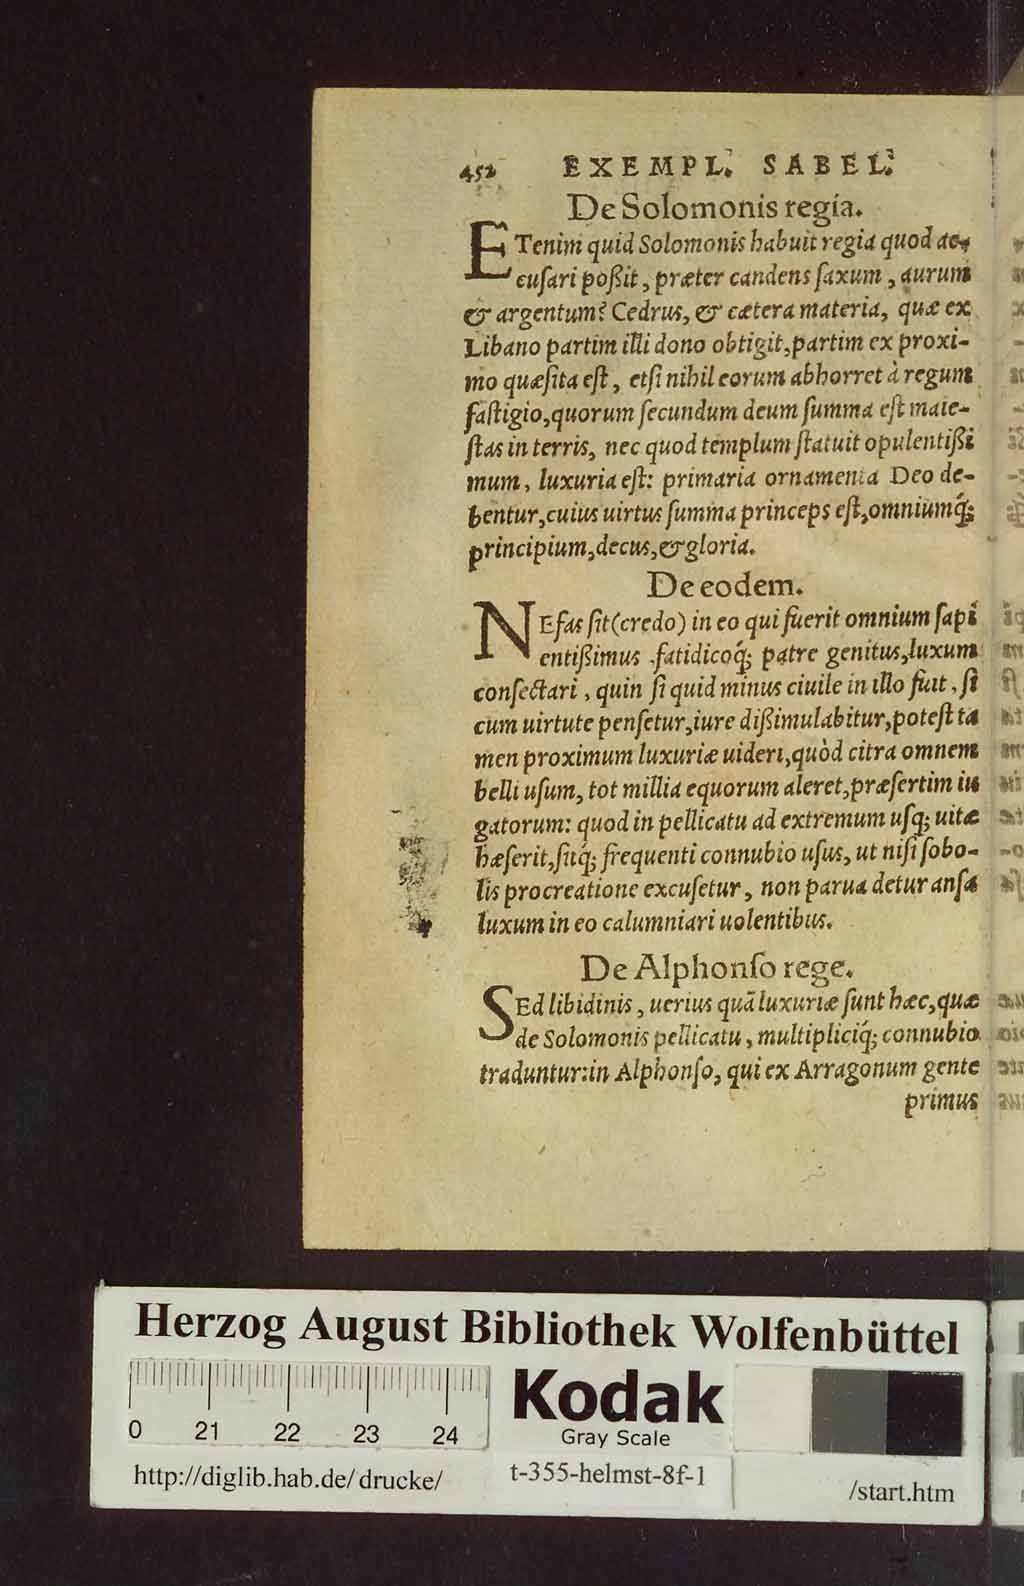 452 EXEMPL. SABEL.
De Solomonis regia.
ETenim quid Solomonis habuit regia quod ac-
cusari poßit, præter candens saxum, aurum
& argentum? Cedrus, & cætera materia, quæ ex
Libano partim illi dono obtigit, partim ex proxi-
mo quæsita est, etsi nihil eorum abhorret à regum
fastigio, quorum secundum deum summa est maie-
stas in terris, nec quod templum statuit opulentißi
mum, luxuria est: primaria ornamenta Deo de-
bentur, cuius uirtus summa princeps est, omniumq́;
principium, decus, & gloria.
De eodem.
NEfas sit (credo) in eo qui fuerit omnium sapi
entißimus fatidicoq́; patre genitus, luxum
consectari, quin si quid minus ciuile in illo fuit, si
cum uirtute pensetur, iure dißimulabitur, potest ta
men proximum luxuriæ uideri, quòd citra omnem
belli usum, tot millia equorum aleret, præsertim iu
gatorum: quod in pellicatu ad extremum usq; uitæ
hæserit, sitq́; frequenti connubio usus, ut nisi sobo-
lis procreatione excusetur, non parua detur ansa
luxum in eo calumniari uolentibus.
De Alphonso rege.
SEd libidinis, uerius quā luxuriæ sunt hæc, quæ
de Solomonis pellicatu, multipliciq́; connubio
traduntur: in Alphonso, qui ex Arragonum gente
primus
Herzog August Bibliothek Wolfenbüttel
0 21 22 23 24
Kodak
Gray Scale
http://diglib.hab.de/drucke/ t-355-helmst-8f-1 /start.htm